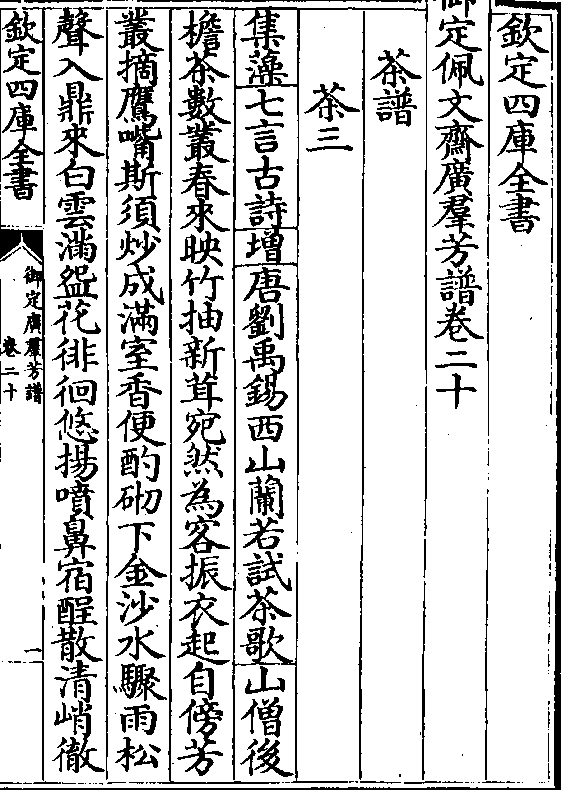 欽定四庫全書
御定佩文齋廣羣芳譜卷二十
茶譜
茶三
集藻七言古詩增唐劉禹錫西山蘭若試茶歌山僧後
檐茶數叢春來映竹抽新茸宛然為客振衣起自傍芳
叢摘鷹嘴斯須炒成滿室香便酌砌下金沙水驟雨松
聲入鼎來白雲滿盌花徘徊悠揚噴鼻宿酲散清峭徹
欽定四庫全書
御定廣羣芳譜
卷二十
一